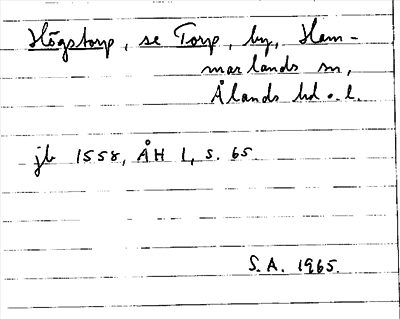 Högstorp, se Torp, by, Ham-
marlands sn,
Ålands hd o. l.
jb 1558, ÅH 1, s. 65.
S. A. 1965.